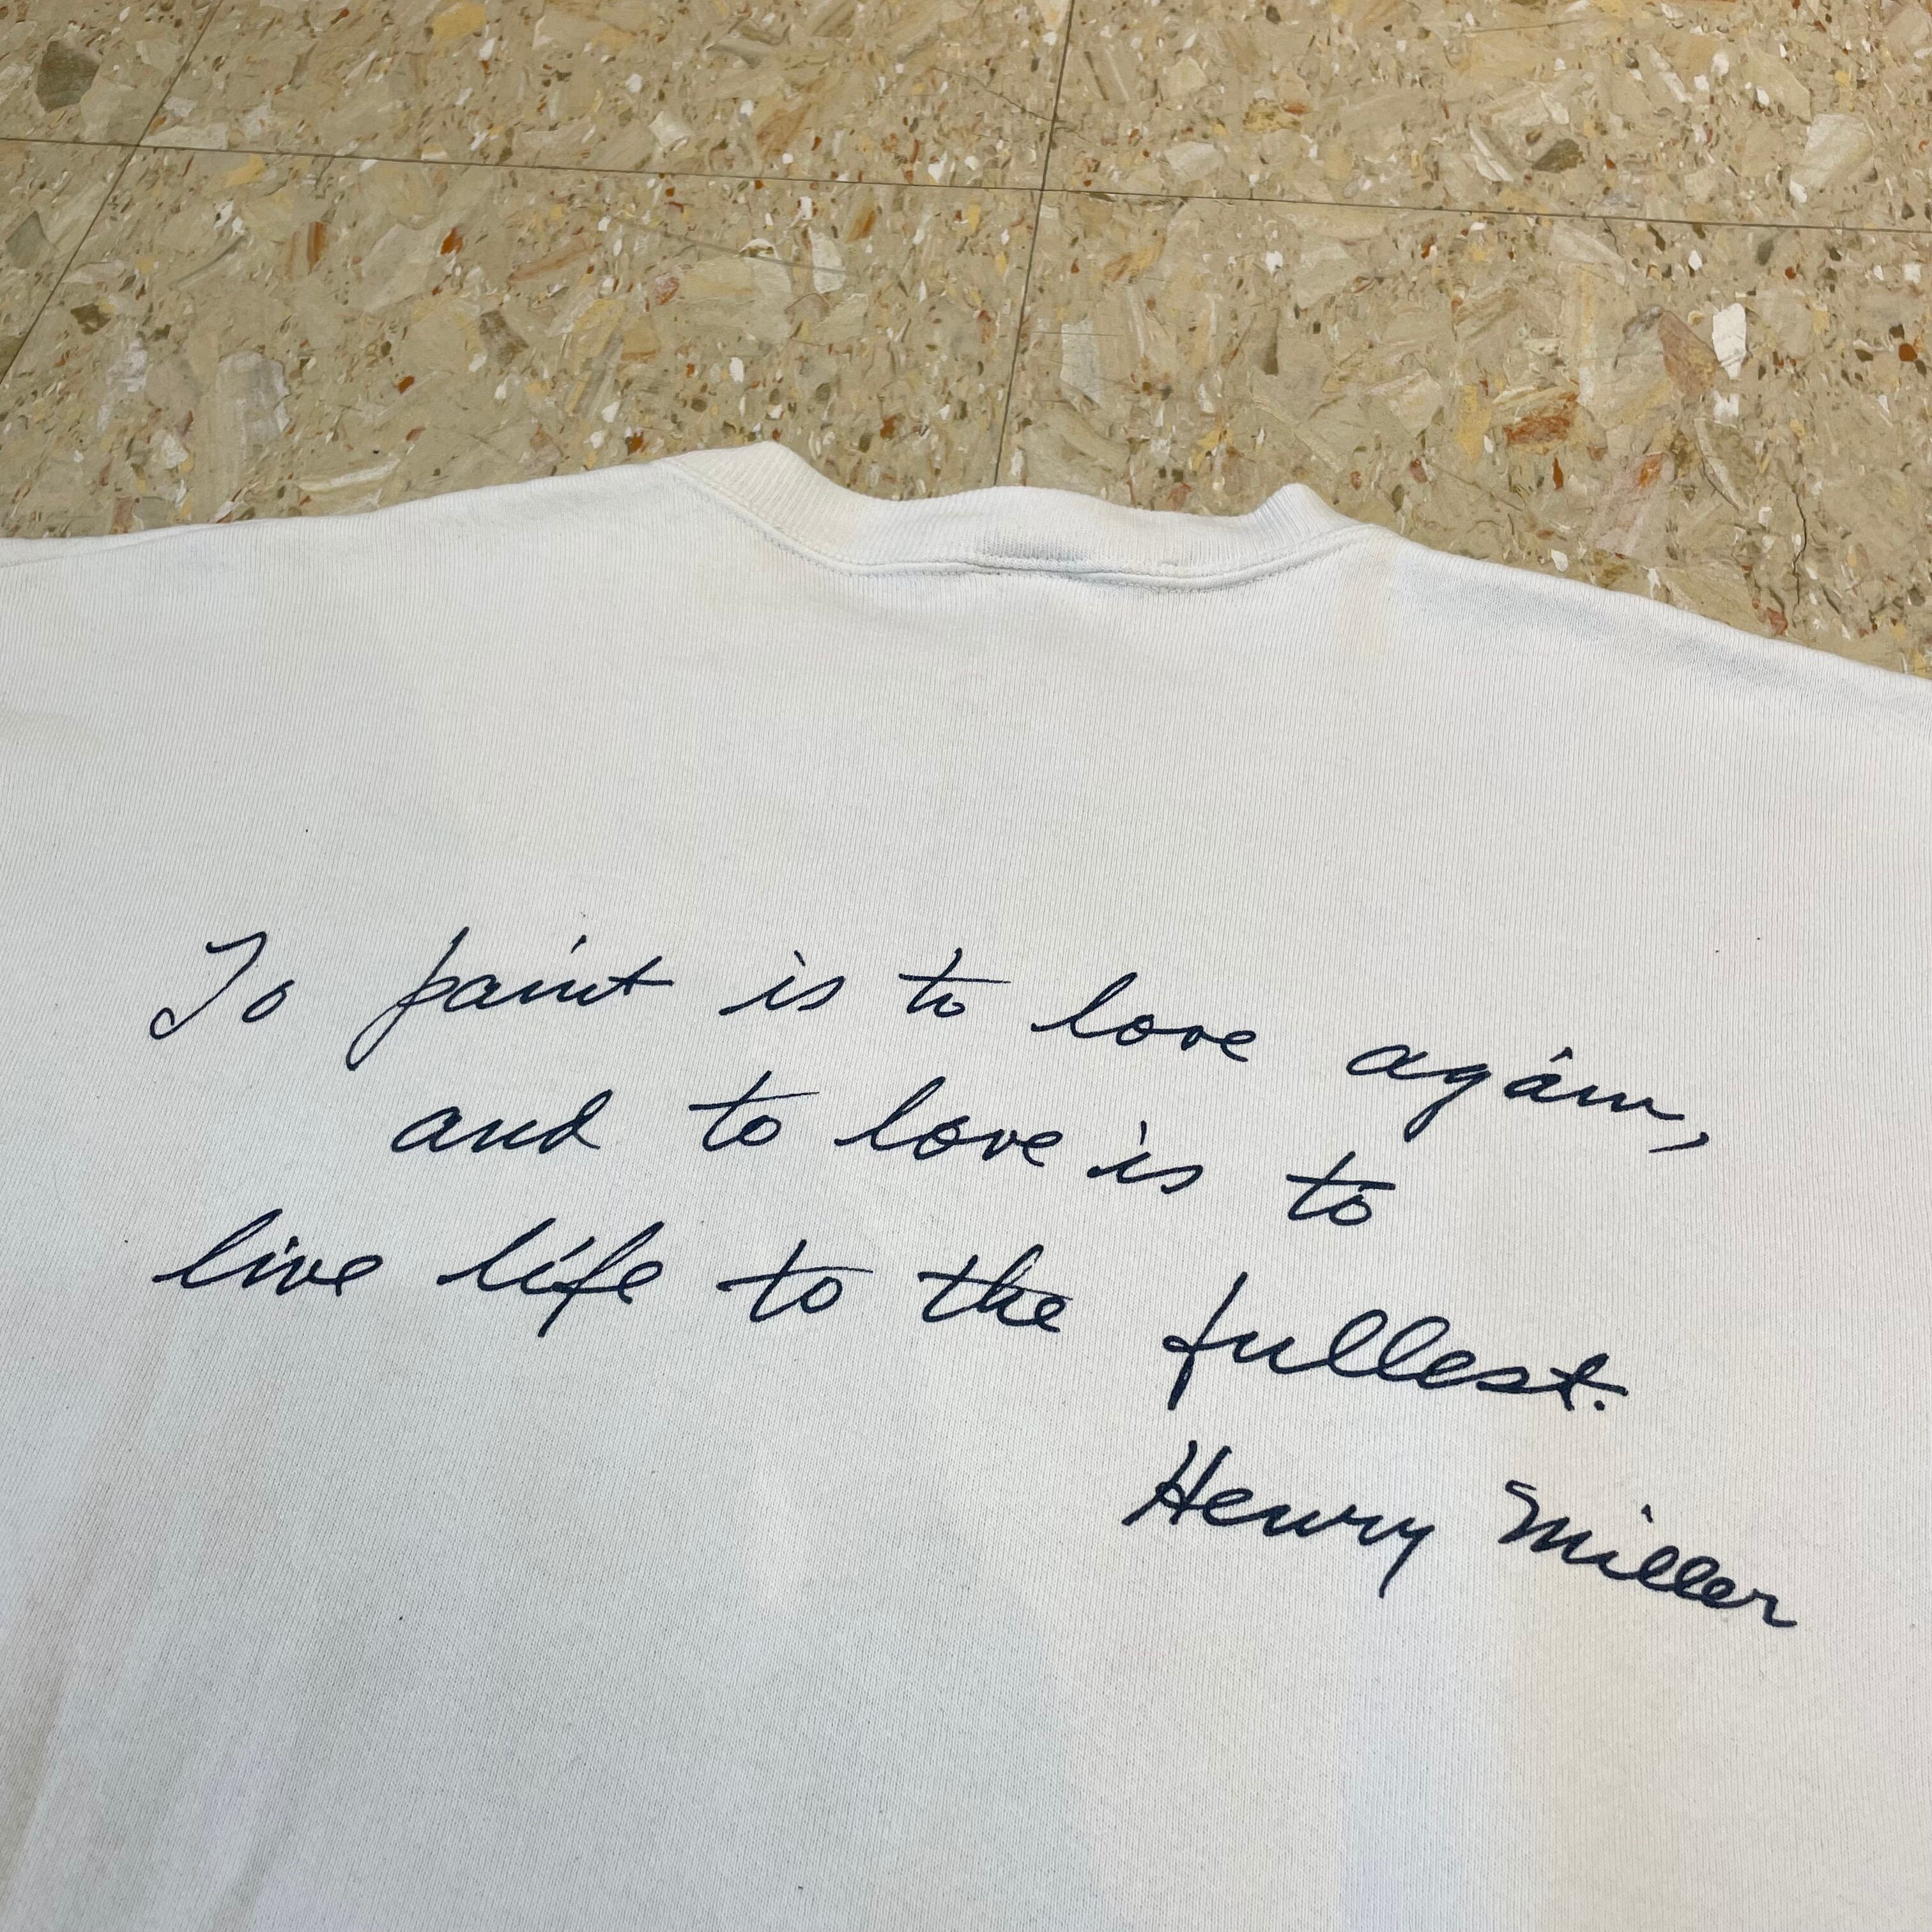 To paint is to love again,
and to love is to
live life to the fullest.
Henry Miller